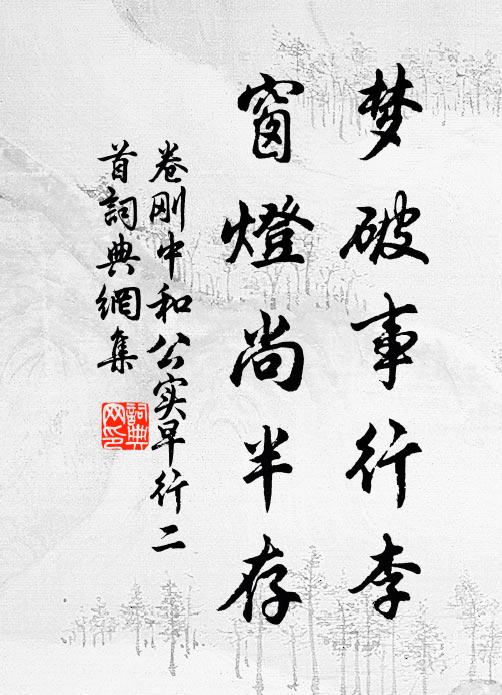 梦破事行李
窗燈尚半存
卷刚中和公实早行二
首詞典網集
詞典
网印